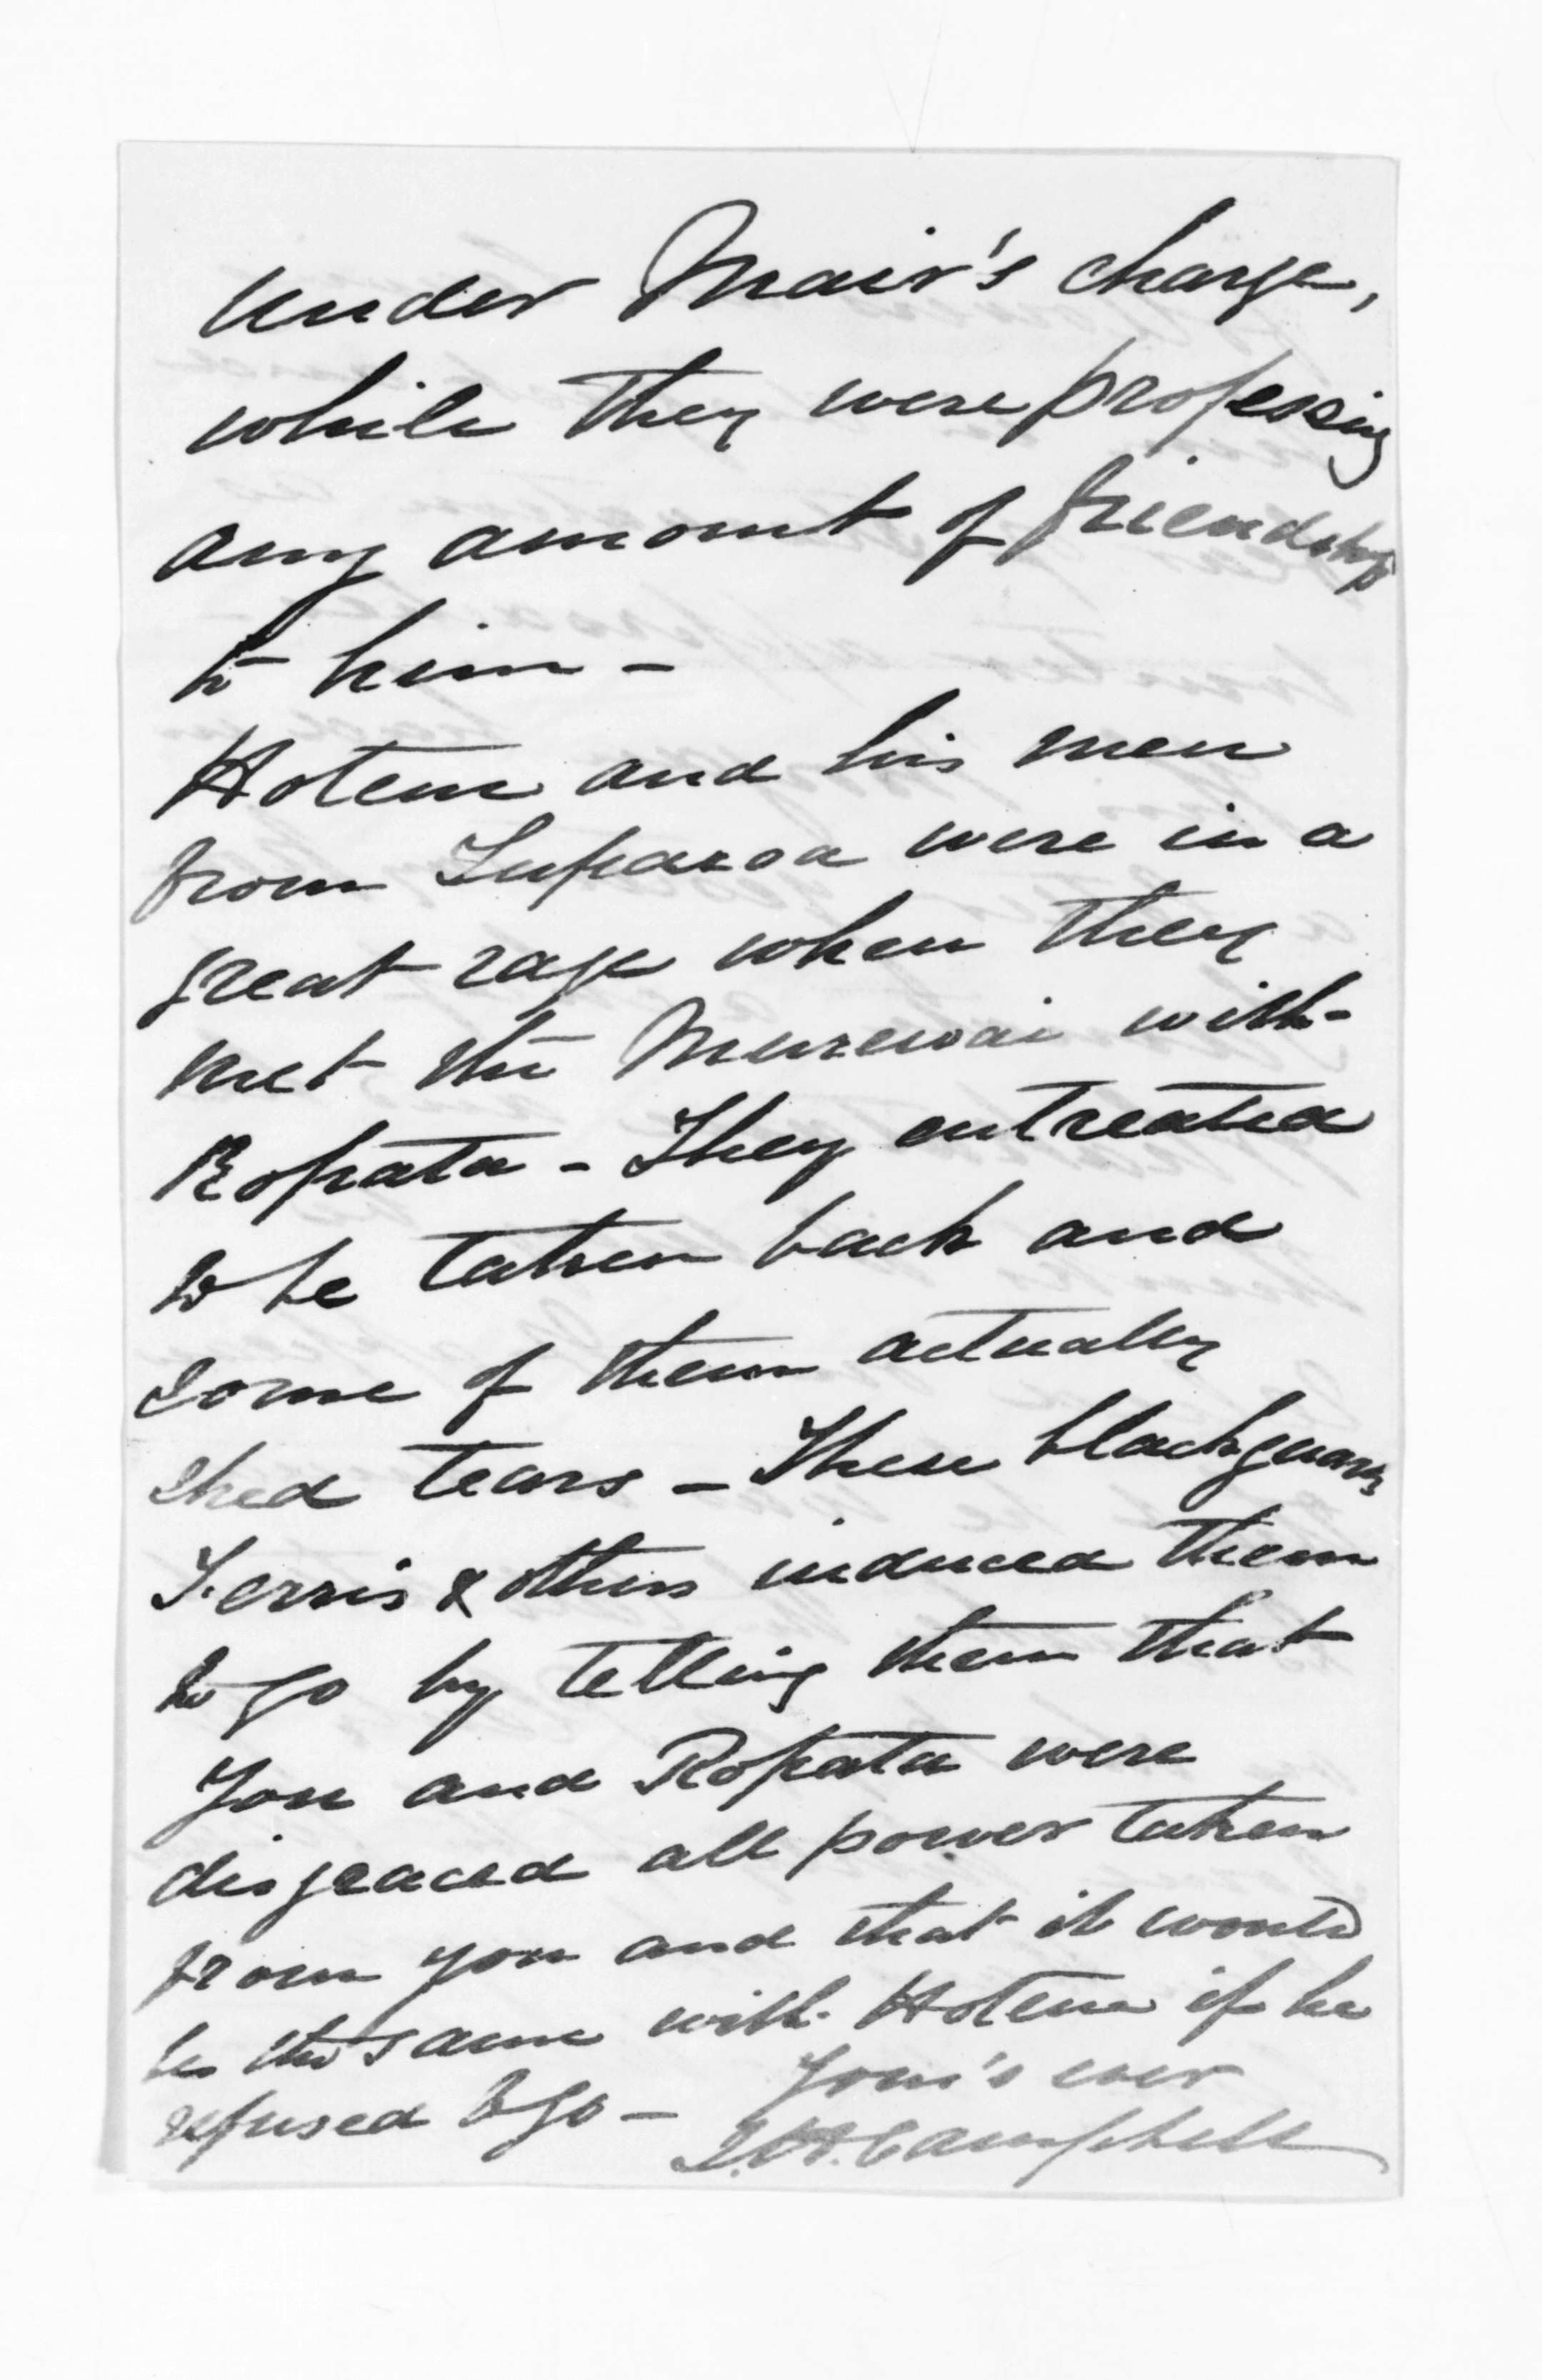 under Mair's charge,
while they were professing
any amount of friendship
to him -
Hotene and his men
from Tuparoa were in a
great rage when they
met the Murewai with
Ropata - They entreated
to be taken back and
some of them actually
shed tears - These blackguards
Ferris & others induced them
to go by telling them that
you and Ropata were
disgraced all power taken
from you and that it would
be the same with Hotene if he
refused to go - Your's ever
Campbell